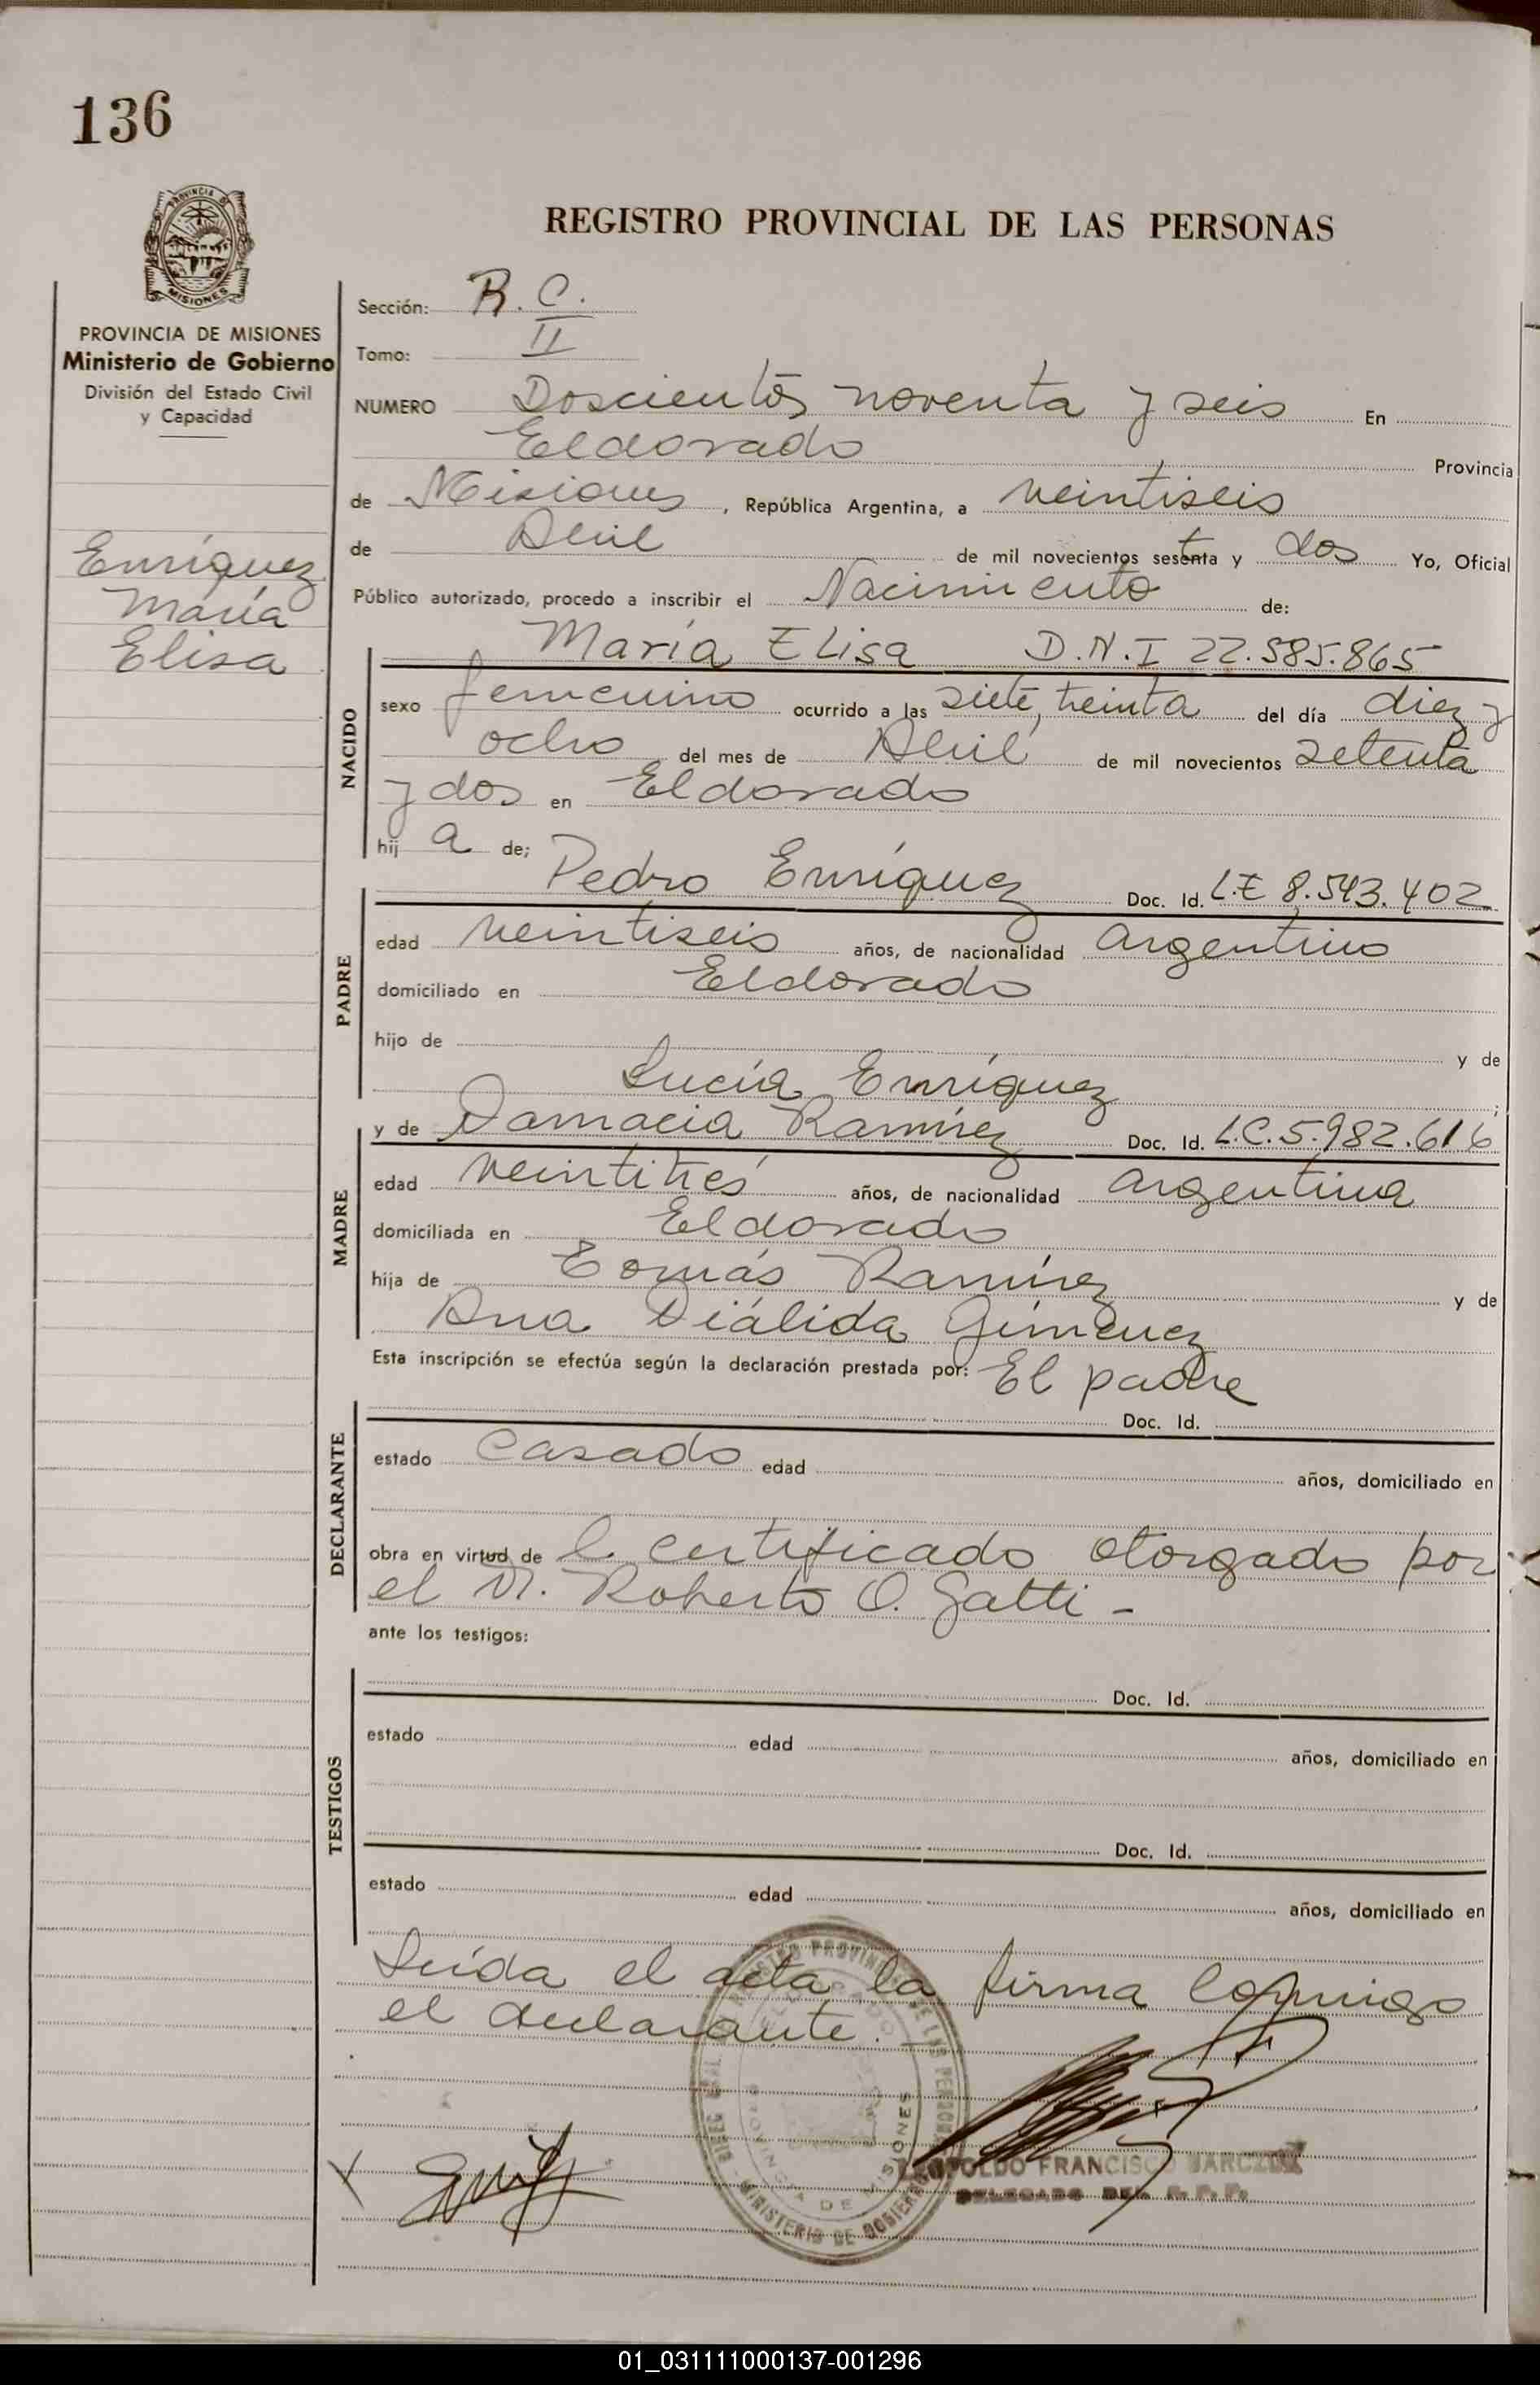 136
REGISTRO PROVINCIAL DE LAS PERSONAS
PROVINCIA DE MISIONES
Ministerio de Gobierno
División del Estado Civil
y Capacidad
Enríquez
María
Elisa
Sección: R. C.
Tomo: II
NUMERO Doscientos noventa y seis En
Eldorado Provincia
de Misiones, República Argentina, a veintiseis
de Abril de mil novecientos setenta y dos Yo, Oficial
Público autorizado, procedo a inscribir el Nacimiento de:
María Elisa D.N.I 22.585.865
NACIDO
sexo femenino ocurrido a las siete, treinta del día diez y
ocho del mes de Abril de mil novecientos setenta
y dos en Eldorado
hij a de;
Pedro Enríquez Doc. Id. L.E 8.543.402
PADRE
edad veintiseis años, de nacionalidad argentino
domiciliado en Eldorado
hijo de y de
Lucía Enríquez;
y de Damacia Ramírez Doc. Id. L.C.5.982.616
MADRE
edad veintitrés años, de nacionalidad argentina
domiciliada en Eldorado
hija de Tomás Ramírez y de
Ana Giménez
Esta inscripción se efectúa según la declaración prestada por: El padre
Doc. Id.
DECLARANTE
estado casado edad años, domiciliado en
obra en virtud de l certificado otorgado por
el Dr. Roberto O. Gatti -
ante los testigos:
Doc. Id.
TESTIGOS
estado edad años, domiciliado en
Doc. Id.
estado edad años, domiciliado en
Leída el acta la firma conmigo
el declarante.
PROVINCIA DE MISIONES
MINISTERIO DE GOBIERNO
LEOPOLDO FRANCISCO
DELEGADO DEL R. P. P.
01_031111000137-001296